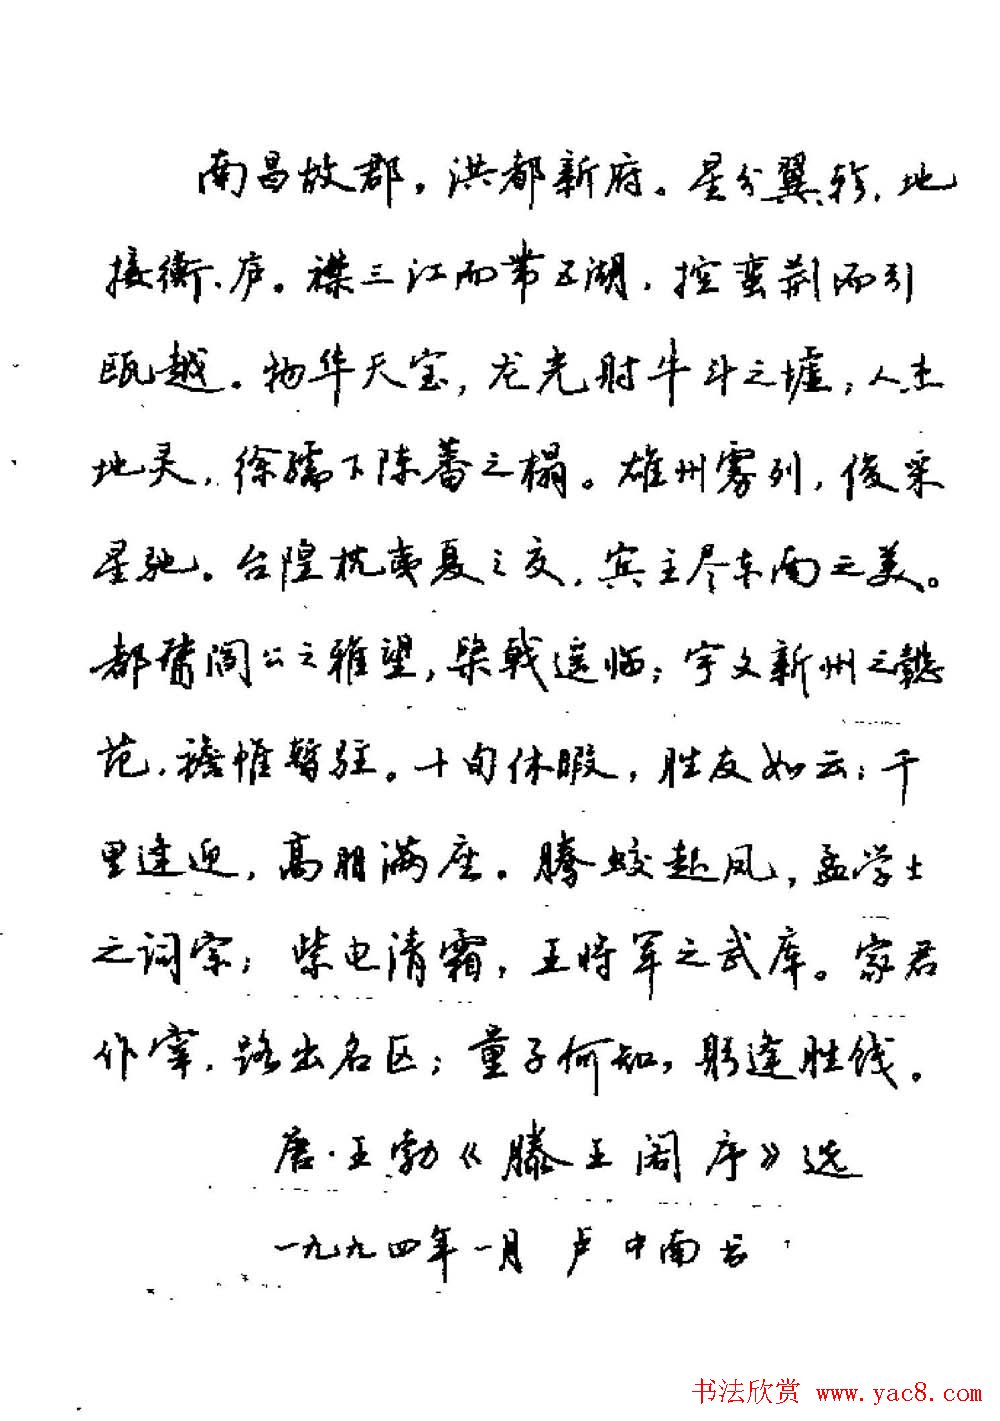 南昌故郡，洪都新府。星分翼轸，地
接衡、庐。襟三江而带五湖，控蛮荆而引
瓯越。物华天宝，龙光射牛斗之墟；人杰
地灵，徐孺下陈蕃之榻。雄州雾列，俊采
星驰。台隍枕夷夏之交，宾主尽东南之美。
都督阎公之雅望，棨戟遥临；宇文新州之懿
范，襜帷暂驻。十旬休暇，胜友如云；千
里逢迎，高朋满座。腾蛟起凤，孟学士
之词宗；紫电清霜，王将军之武库。家君
作宰，路出名区；童子何知，躬逢胜饯。
唐·王勃《滕王阁序》选
一九九四年一月 卢中南书
书法欣赏 www.yac8.com